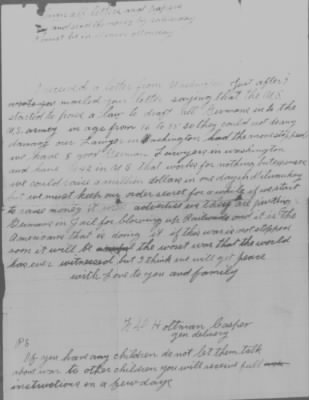 letters and papers
and send the money by
must be in German attorney
I received a letter from Washington just after I
wrote you mailed your letter saying that the U.S.
started to force a law to draft all Germans into the
U.S. army in age from 16 to so they could not bring
damage our Lawyer in Washington had the
we have 8 good German Lawyers in Washington
and have in U.S that works for nothing but expenses
we could raise a million dollars in one day in
but we must keep our order secret for a while if we start
to raise money it will advertise us they are putting
Germans in Jail for blowing up Railroads and it is the
Americans that is doing it if this war is not stopped
soon it will be the worst war that the world
has ever witnessed but I think we will get peace
with love to you and family
W H Holtman Casper
gen delivery
PS
If you have any children do not let them talk
about war to other children you will receive full
instructions in a few days